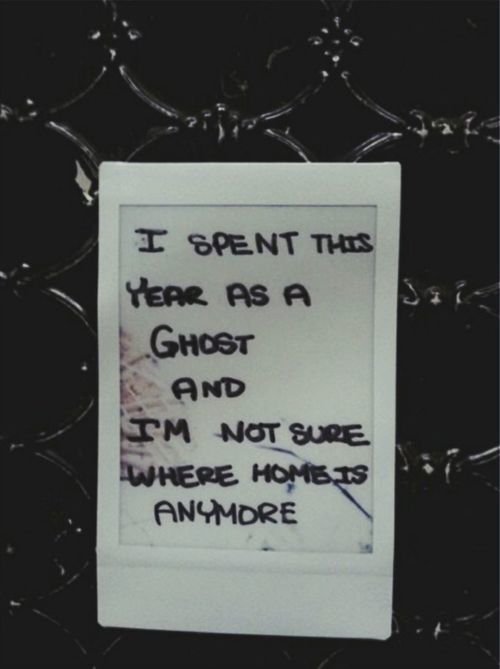 I SPENT THIS
YEAR AS A
GHOST
AND
I'M NOT SURE
WHERE HOME IS
ANYMORE